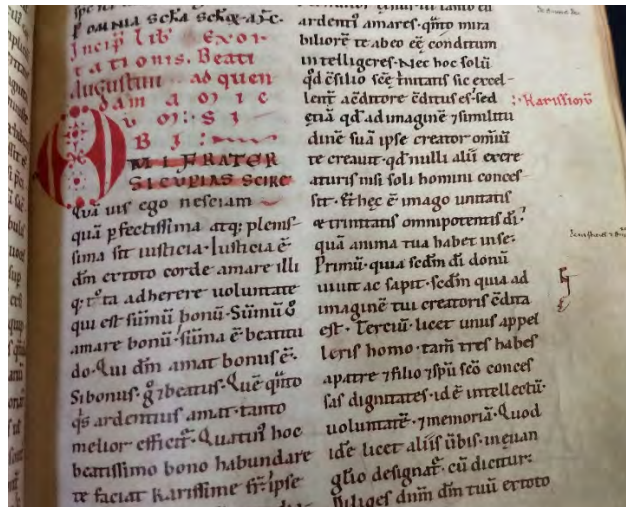 p̄ omnia sc̄la sc̄lor̄. am̄.
Incip̄ lib̄ exor
tationis. Beati
Augustini ad quen
dam amic
um: SI
BI :
O MI FRATER
SI CUPIAS SCIRE
qua uis ego nesciam
quā p̄fectissima atq; plenis-
sima sit iusticia. Iusticia ē
dm̄ ex toto corde amare illi
q; tota adherere uoluntate
qui est sūmū bonū. Sūmū ū
amare bonū. sūma ē beatitu
do. Qui dm̄ amat bonus ē.
Si bonus. g̊ ⁊ beatus. Quē q̄nto
q̄s ardentius amat. tanto
melior efficit̄. Quatin̄ hoc
beatissimo bono habundare
te faciat Karissime fr̄. ipse
ardenti amares. q̄nto mira
biliore te ab eo eē conditum
intelligeres. Nec hoc solū
qd̄ c̄silio sc̄e t̄nitatis sic excel-
lent̄ a c̄ditore c̄ditus es. sed
etiā qd̄ ad imaginē ⁊ similitu
dinē suā ipse creator om̄iū
te creauit. qd̄ nulli alii ex cre
aturis nisi soli homini conces
sit. Et hec ē imago unitatis
⁊ trinitatis omnipotentis di.
quā anima tua habet in se.
Primū. quia sc̄dm di donū
uiuit ac sapit. sc̄dm quia ad
imaginē tui creatoris c̄dita
est. Terciū. licet unus appel
leris homo. tam̄ tres habes
a patre ⁊ filio ⁊ sp̄u sc̄o conces
sas dignitates. id ē intellectū.
uoluntatē. ⁊ memoriā. Quod
idē licet aliis ūbis. in euan
glio designat̄. cū dicitur:
Diliges dnm̄ dm̄ tuū ex toto
Karissimū